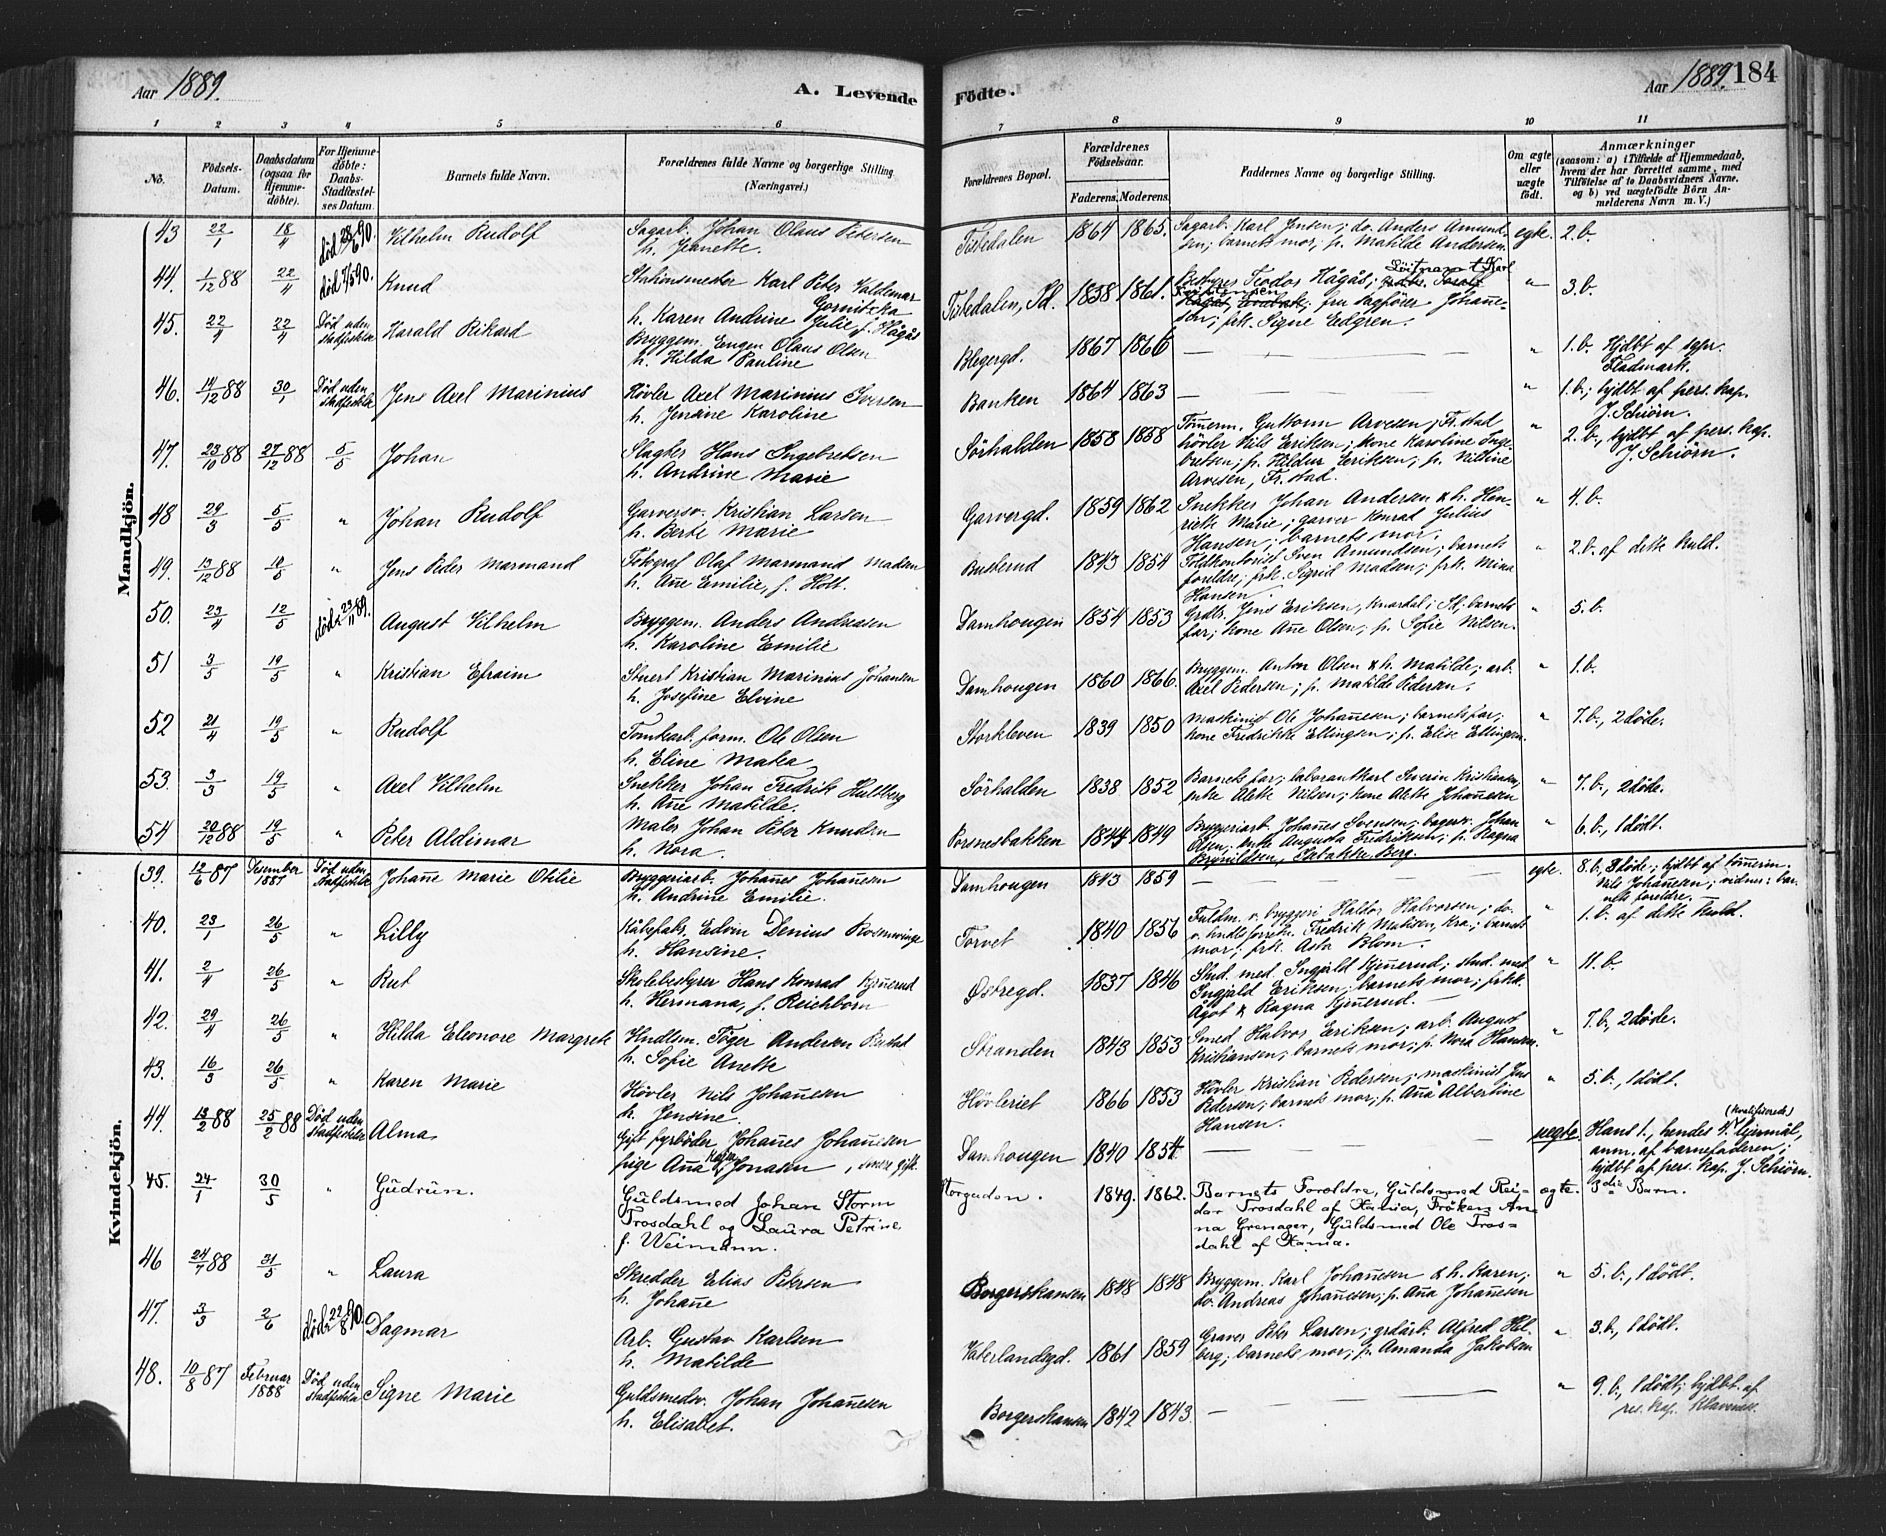 Aar 1889.
A. Levende Födte.
Aar 1889. 184
1 2 3 4 5 6 7 8 9 10 11
No.
Födsels-Datum.
Daabsdatum (ogsaa for Hjemmedöbte).
For Hjemmedöbte: Daabs-Stadfæstelses Datum.
Barnets fulde Navn.
Forældrenes fulde Navne og borgerlige Stilling. (Næringsvei.)
Forældrenes Bopæl.
Forældrenes Födselsaar.
Faderens. Moderens.
Faddernes Navne og borgerlige Stilling.
Om ægte eller uægte födt.
Anmærkninger
(saasom: a) i Tilfælde af Hjemmedaab, hvem der har forrettet samme, med Tilföielse af to Daabsvidners Navne, og b) ved uægtefödte Börn Anmelderens Navn m. V.)
Mandkjön.
43 22/1 18/4 död 28/6 90. Vilhelm Rudolf Sagarb. Johan Olaus Petersen
h. Jeanette. Tistedalen 1864 1865. Sagarb. Karl Jensen; do. Anders Amundsen; barnets mor; p. Matilde Andersen. egte. 2. b.
44. 1/12 88 22/4 död 7/5 90. Knud Stationsmester Karl Peter Valdemar Gornitzka
h. Karen Andrine Julie f. Hågås Tistedalen, Id. 1838 1861. Bestyrer Teodor Hågås; Löitnant Karl
fru Sagförer Johannesön; frk. Signe Edgren. " 3. b.
45. 22/4 22/4 Död uden stadfestelse Harald Rikard Bryggem. Engen Olaus Olsen
h. Hilda Pauline Blegergd. 1867 1866 — " 1. b. Hjdbt af sgpr. Fladmark.
46. 14/12 88 30/1 Död uden stadfestelse Jens Axel Marinius Hövler Axel Marinius Iversen
h. Jensine Karoline Banken 1864 1863 — " 1. b; hjdbt af pers. kap. J. Schiörn.
47. 23/10 88 27/12 88 5/5 Johan Slagter Hans Ingebretsen
h. Andrine Marie Sörhalden 1858 1858 Tömerm. Guttorm Arvesen, Fr.stad
hövler Nils Eriksen; kone Karoline Ingebretsen; p. Hildur Eriksen; p. Nilline
Arvesen, Fr.stad. " 2. b., hjdbt af pers. kap. J. Schiörn.
48 29/3 5/5 " Johan Rudolf Garversv. Kristian Larsen
h. Berte Marie Garvergd. 1859 1862 Snekker Johan Andersen & h. Henriette Marie; garver Konrad Julius
Hansen; barnets mor. " 4. b.
49. 13/12 88 12/5 " Jens Peder Marmand Fotograf Olaf Marmand Madsen
h. Ane Emilie, f. Hott. Busterud 1843 1854 Toldkontorist Sven Amundsen; barnets
foreldre; frk. Sigrid Madsen; frk. Mina
Hansen. " 2. b. af dette kuld.
50. 23/4 12/5 död 23/11 89. August Vilhelm Bryggem. Anders Andreasen
h. Karoline Emilie Damhougen 1854 1853 Grdbr. Jens Eriksen, Knardal i Id; barnets
far; kone Ane Olsen; p. Sofie Nilsen. " 5. b.
51 3/5 19/5 " Kristian Efraim Stuert Kristian Marinius Johansen
h. Josefine Elvine Damhougen 1860 1866. Bryggem. Anton Olsen & h. Matilde; arb.
Axel Pedersen; p. Matilde Pedersen. " 1. b.
52 21/4 19/5 " Rudolf Tomtearb. form. Ole Olsen
h. Eline Matea Storkleven 1839 1850 Maskinist Ole Johanesen; barnets far;
kone Fredrikke Ellingsen; p. Elise Ellingsen. " 7. b., 2 döde.
53. 3/3 19/5 " Axel Vilhelm Snekker Johan Fredrik Hultberg
h. Ane Matilde. Sörhalden 1838 1852 Barnets far; laborant Karl Severin Kristiansen,
enke Alette Nilsen; kone Alette Johanesen " 7. b., 2 döde.
54 20/12 88 19/5 " Peter Aldimar Maler Johan Peter Knudsen
h. Nora. Porsnesbakken 1844 1849 Bryggeriarb. Johanes Svensen; bagersv. Johan
Olsen; enke Augusta Fredriksen; p. Ragna
Brynildsen, Berg. " 6. b., 1 dödt.
Kvindekjön.
39. 12/6 87 Desember 1887 Död uden stadfestelse Johane Marie Otilie Bryggeriarb. Johanes Johanesen
h. Andrine Emilie. Damhougen 1843 1859 — egte. 8. b., 3 döde; hjdbt af tömerm.
Nils Johanesen; vidner: barnets foreldre.
40. 23/1 26/5 " Lilly Kåbefabr. Edvin Denius Rosenvinge
h. Hansine. Torvet 1840 1856 Fuldm. v. bryggeri Haldor Halvorsen; do.
v. hndlsforretn. Fredrik Mathisen, Kra.; barnets
mor; frk. Asta Blom. " 1. b. af dette kuld.
41. 2/4 26/5 " Rut Skolebestyrer Hans Konrad Kjenerud
h. Hermana, f. Reichborn Östregd. 1837 1846 Stud. med. Ingjald Kjenerud; stud. med.
Ingjald Eriksen; barnets mor; frknr.
Ågot & Ragna Kjenerud. " 11. b.
42. 29/4 26/5 " Hilda Eleonore Margrete Hndlsm. Töger Andersen Rustad
h. Sofie Anette Stranden 1843 1853 Smed Halvor Eriksen; arb. August
Kristiansen; barnets mor; p. Nora Hansen. " 7. b., 2 döde.
43. 16/3 26/5 " Karen Marie Hövler Nils Johanesen
h. Jensine. Hövleriet 1866 1853 Hövler Kristian Pedersen; maskinist Jens
Pedersen; barnets mor; p. Ana Albertine
Hansen. " 5. b., 1 dödt.
44. 13/2 88 25/2 88 Död uden stadfestelse Alma Gift fyrböder Johanes Johanesen
pige Ana Jonasen, senere gift. Damhougen 1840 1854. — uegte. Hans 1., hendes 2. (kvalificerede) leiermål,
anm. af barnefaderen;
hjdbt af pers. kap. J. Schiörn.
45. 24/1 30/5 " Gudrun. Guldsmed Johan Storm
Trosdahl og Laura Petrine
f. Weimann. Storgaden. 1849. 1862. Barnets Forældre, Guldsmed Reidar Trosdahl af Xania, Fröken Anna Grenager, Guldsmed Ole Trosdahl af Xania. ægte. 3die Barn.
46 24/7 88 31/5 " Laura Skredder Elias Petersen
h. Johane Borgerskansen 1848 1848 Bryggem. Karl Johanesen & h. Karen;
do. Andreas Johanesen; p. Ana Johanesen " 5. b., 1 dödt.
47. 3/3 2/6 död 22/8 90. Dagmar Arb. Gustav Karlsen
h. Matilde Vaterlandsgd. 1861 1859 Graver Peter Larsen; grdarb. Alfred Holberg; barnets mor; p. Amanda Jakobsen " 3. b., 1 dödt.
48. 10/8 87 Februar 1888 Död uden stadfestelse Signe Marie Guldsmedsv. Johan Johanesen
h. Elisabet. Borgerskansen 1842 1843. — " 9. b., 1 dödt; hjdbt. af
res. kap. Klaveness.